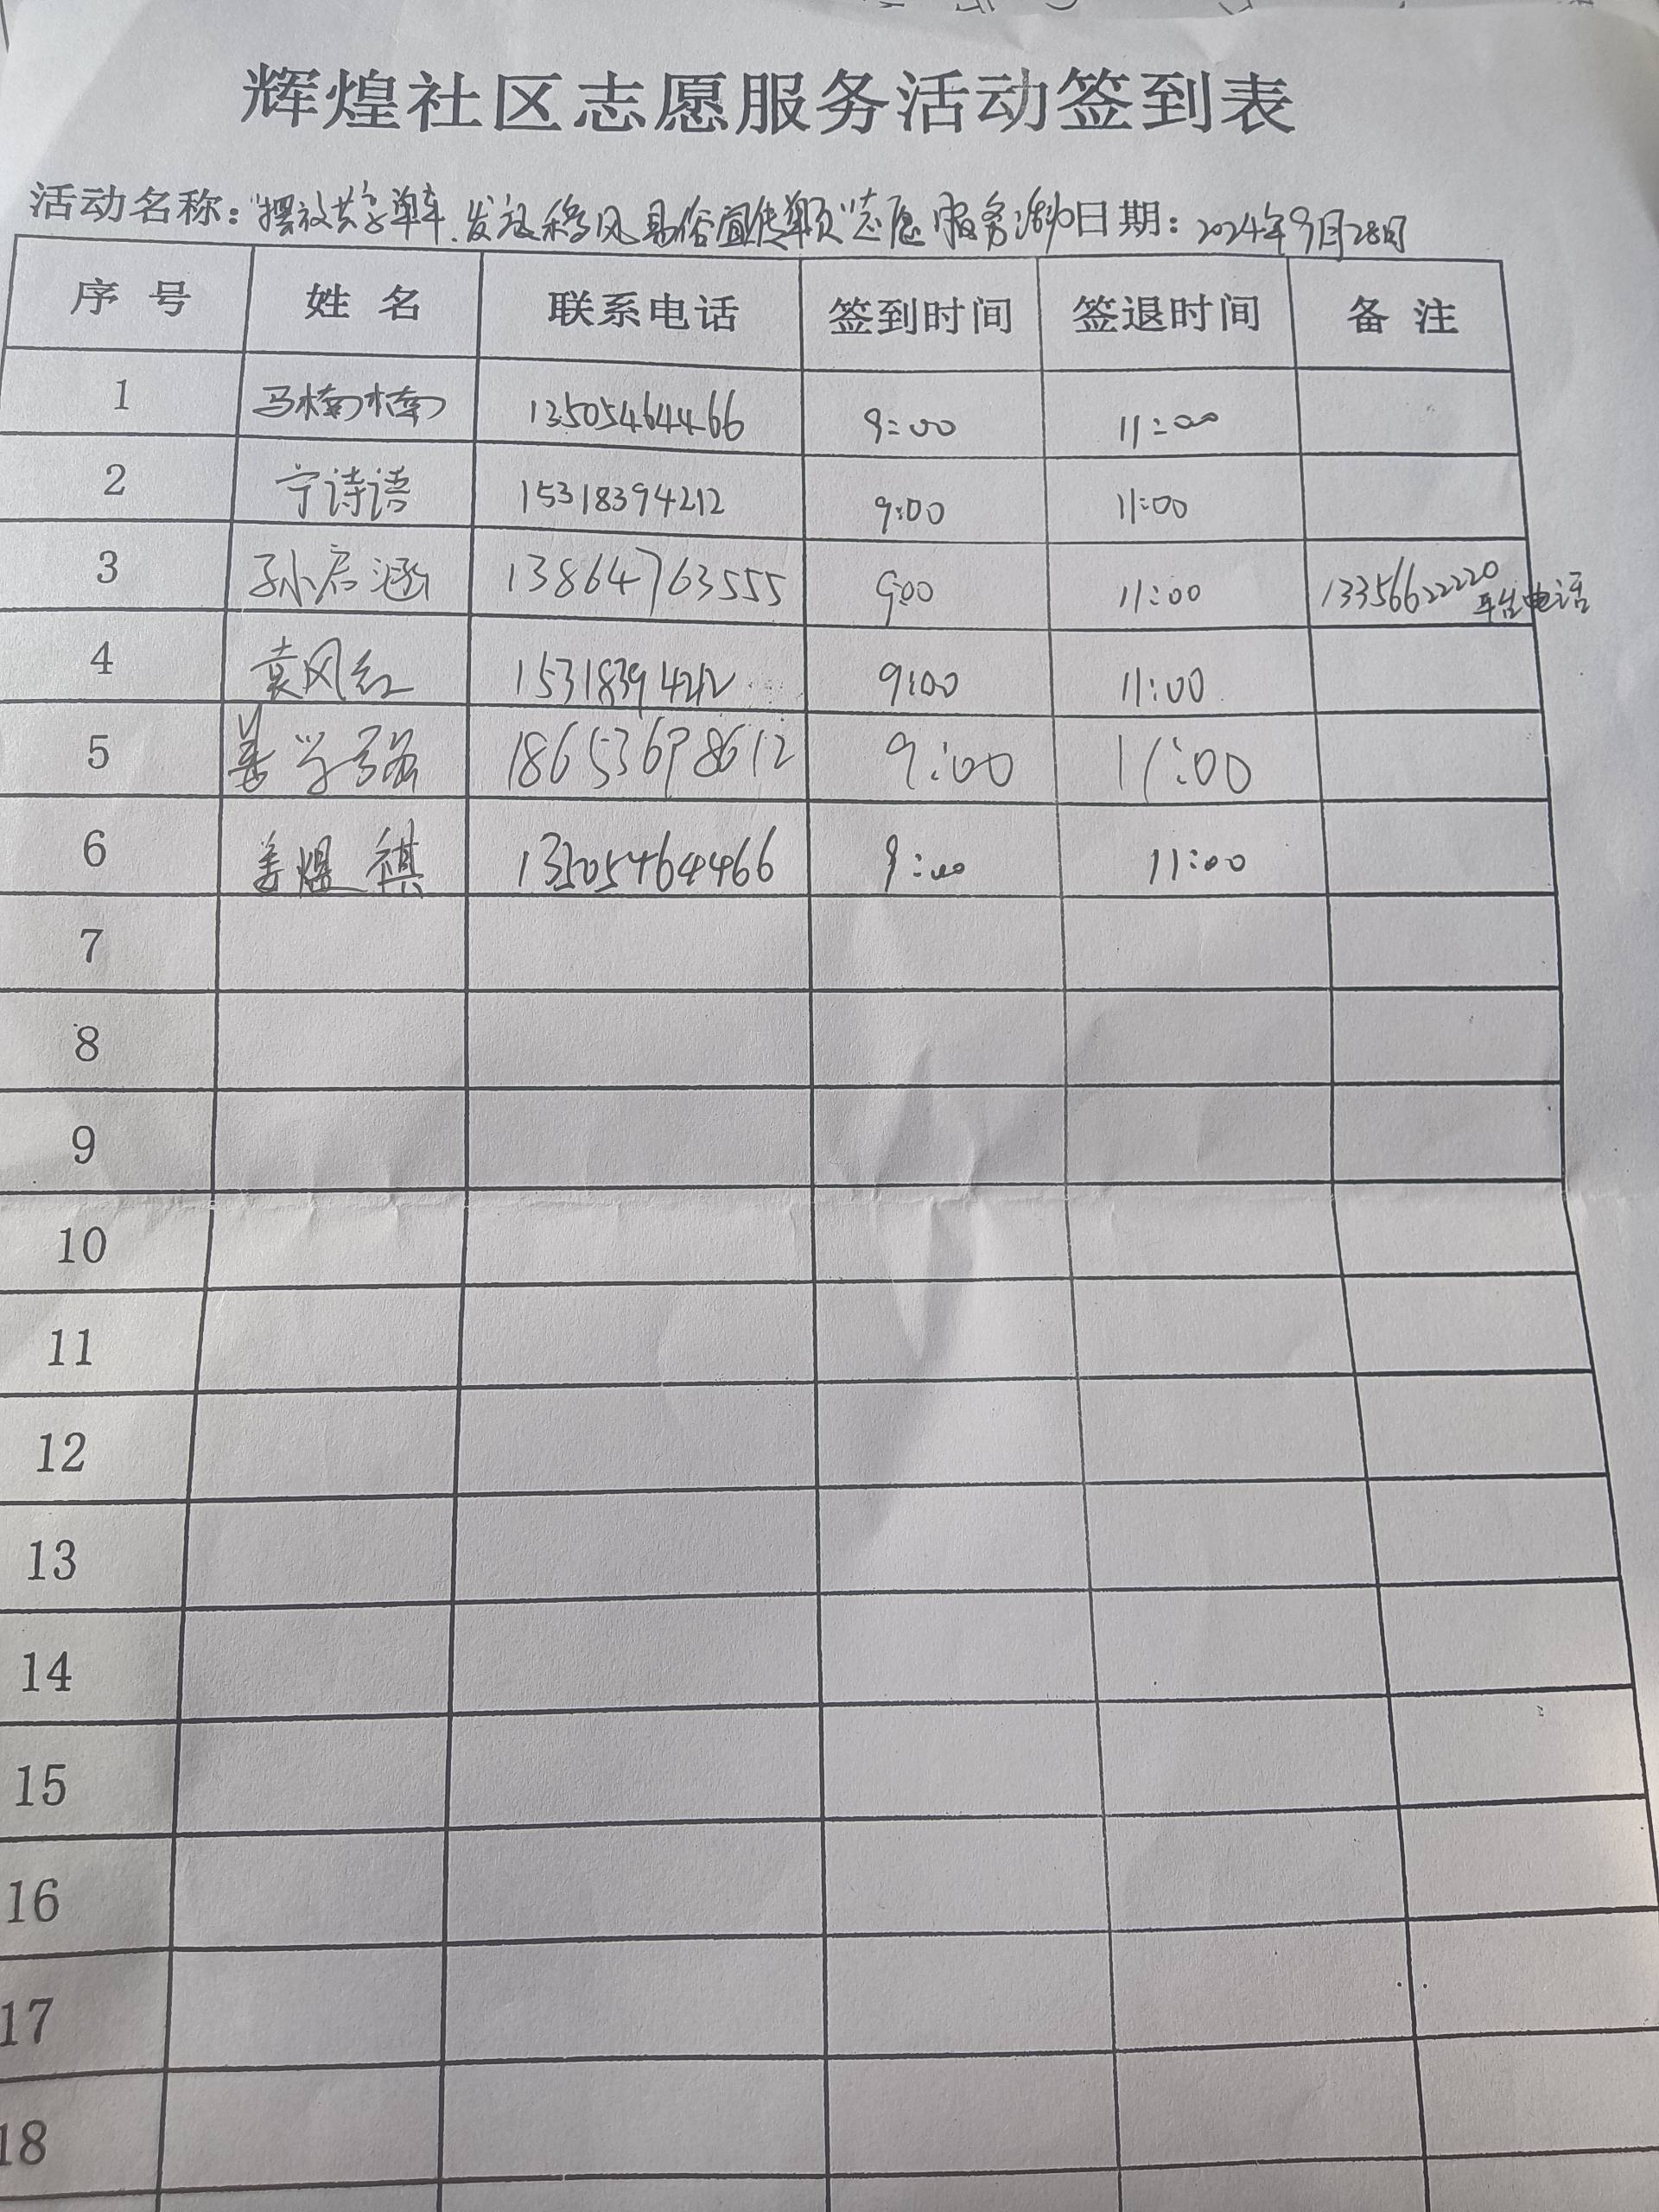 辉煌社区志愿服务活动签到表
活动名称："摆放共享单车、发放移风易俗宣传单页"志愿服务活动日期：2024年9月28日
序号 姓名 联系电话 签到时间 签退时间 备注
1 马楠楠 13505464466 9:00 11:00
2 宁诗语 15318394212 9:00 11:00
3 孙启涵 13864763555 9:00 11:00 13356622220 平台电话
4 袁风红 15318394212 9:00 11:00
5 姜学 18653698612 9:00 11:00
6 姜煜祺 13505464466 9:00 11:00
7
8
9
10
11
12
13
14
15
16
17
18